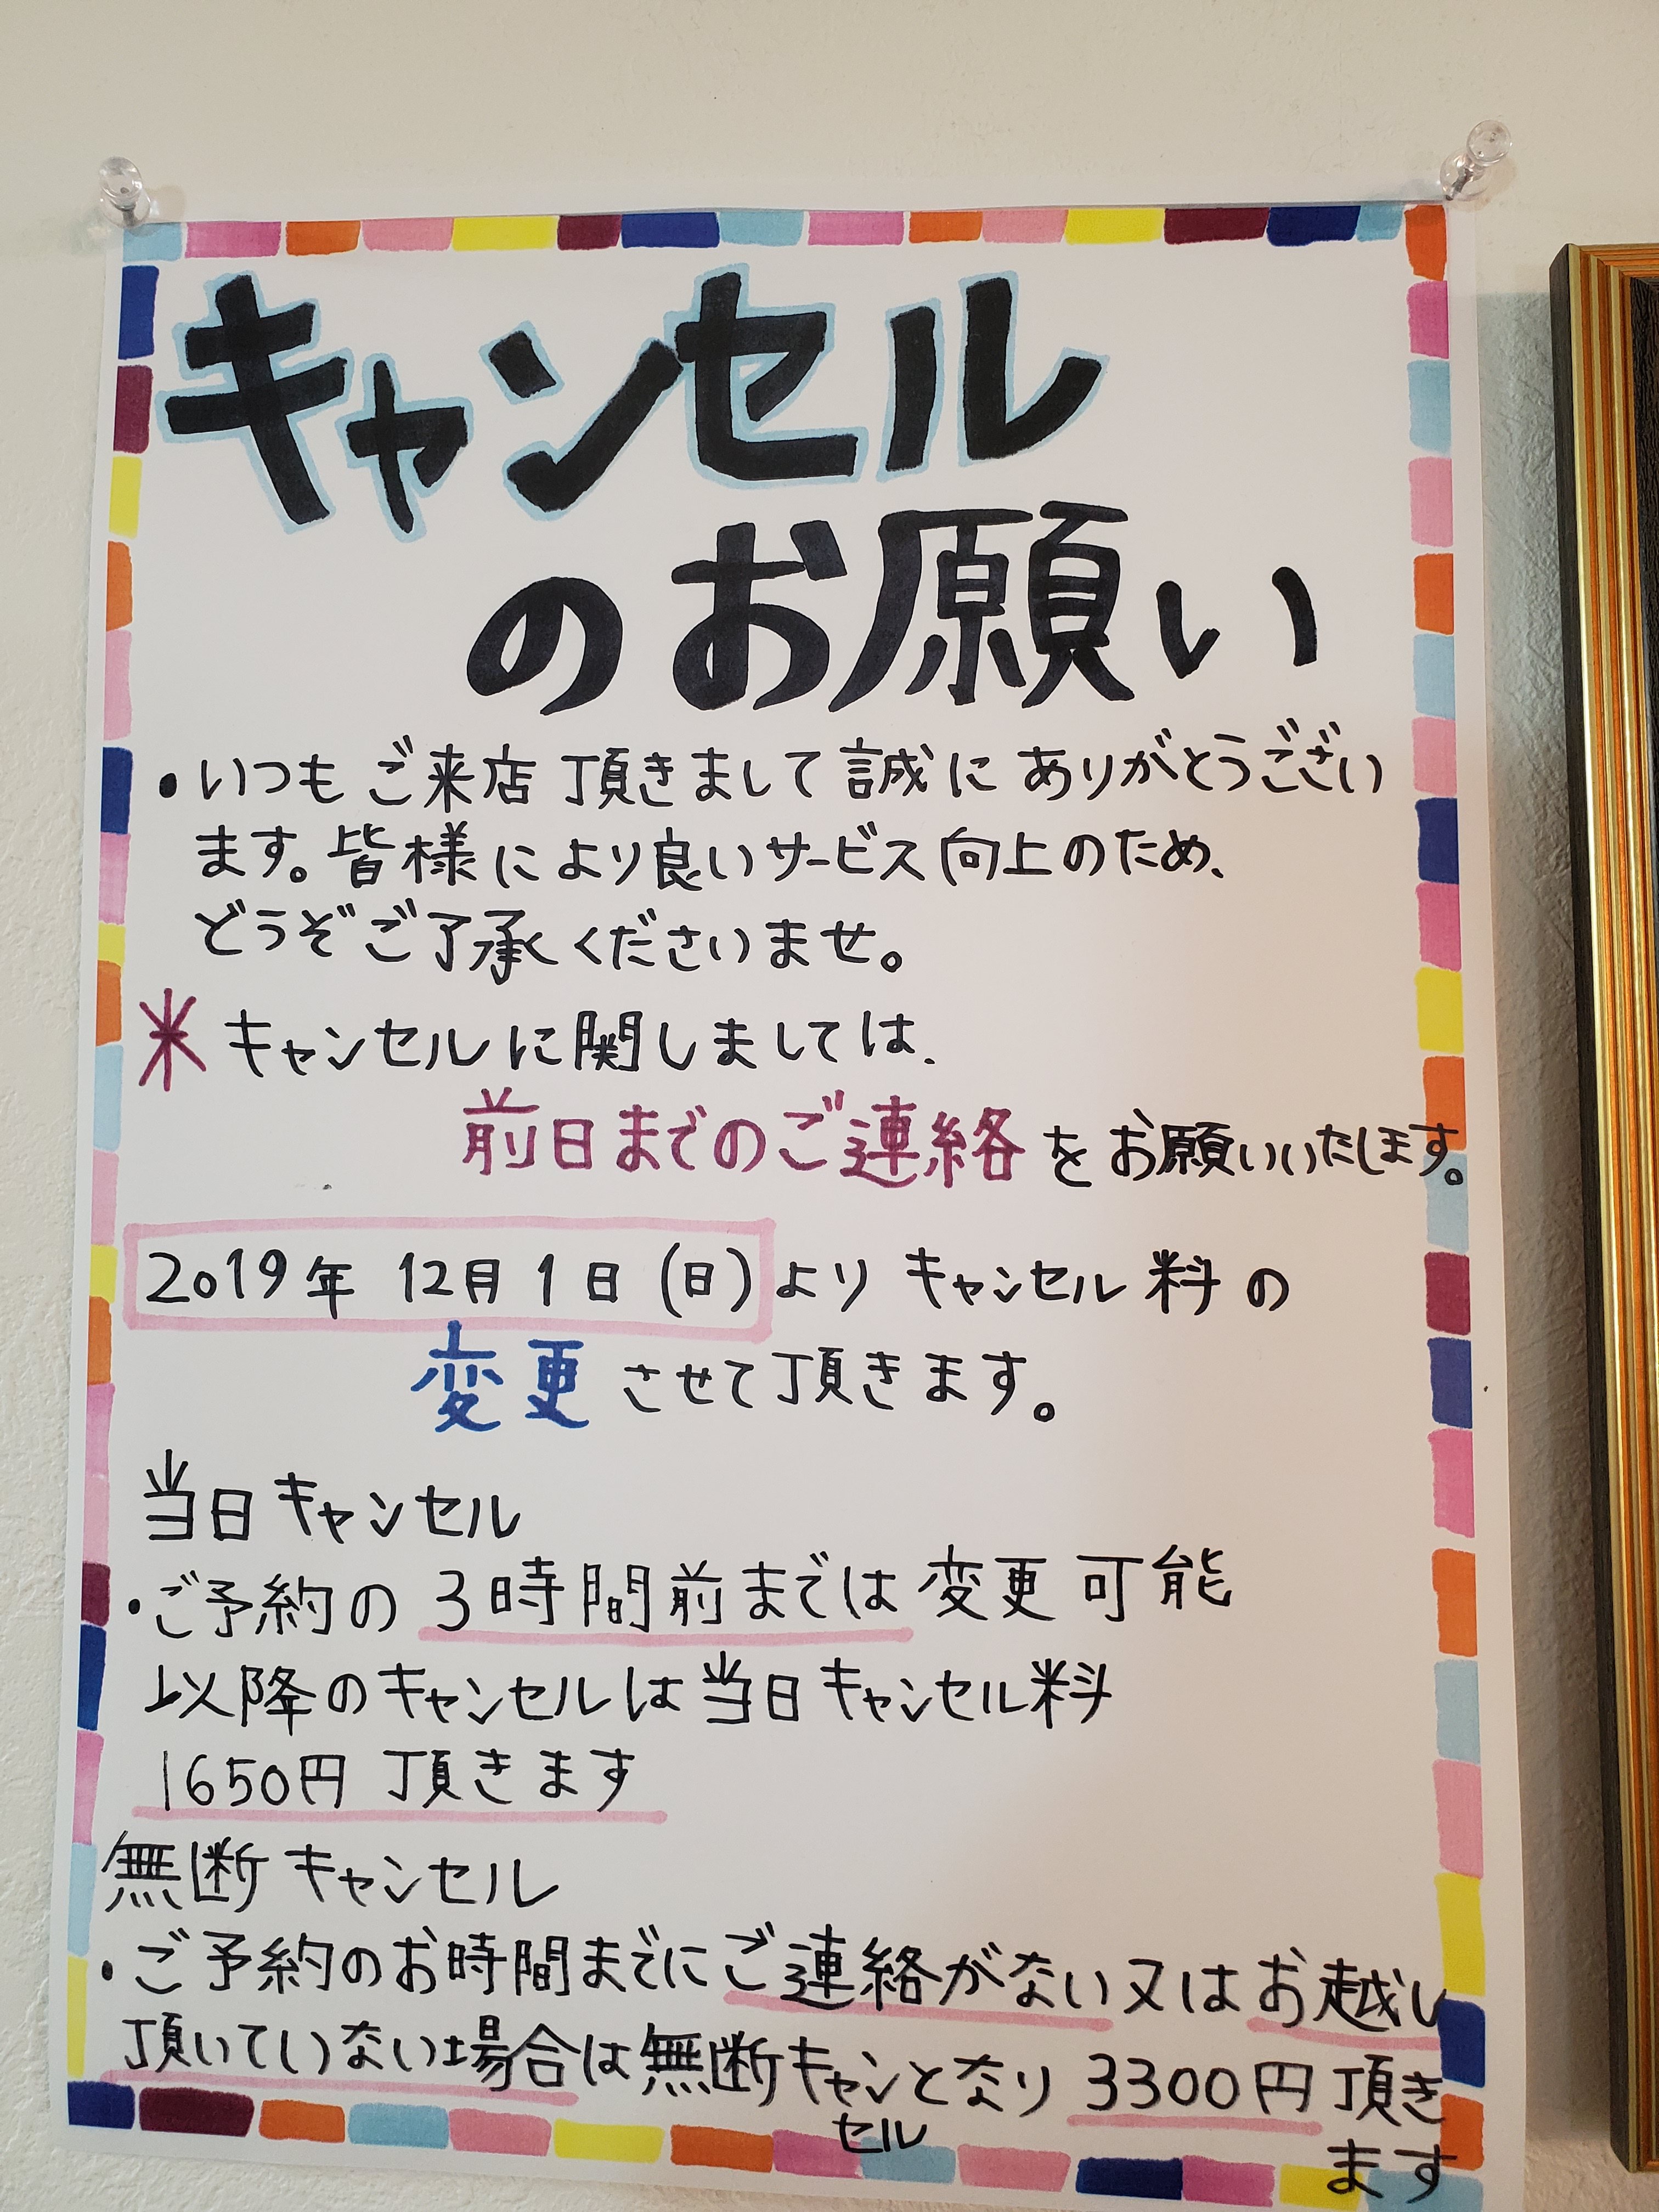 キャンセル
のお願い
・いつもご来店頂きまして誠にありがとうござい
ます。皆様により良いサービス向上のため、
どうぞご了承くださいませ。
※キャンセルに関しましては、
前日までのご連絡をお願いいたします。
2019年 12月1日(日)よりキャンセル料の
変更させて頂きます。
当日キャンセル
・ご予約の3時間前までは変更可能
以降のキャンセルは当日キャンセル料
1650円 頂きます
無断キャンセル
・ご予約のお時間までにご連絡がない又はお越し
頂いていない場合は無断キャンとなり3300円頂き
セル
ます